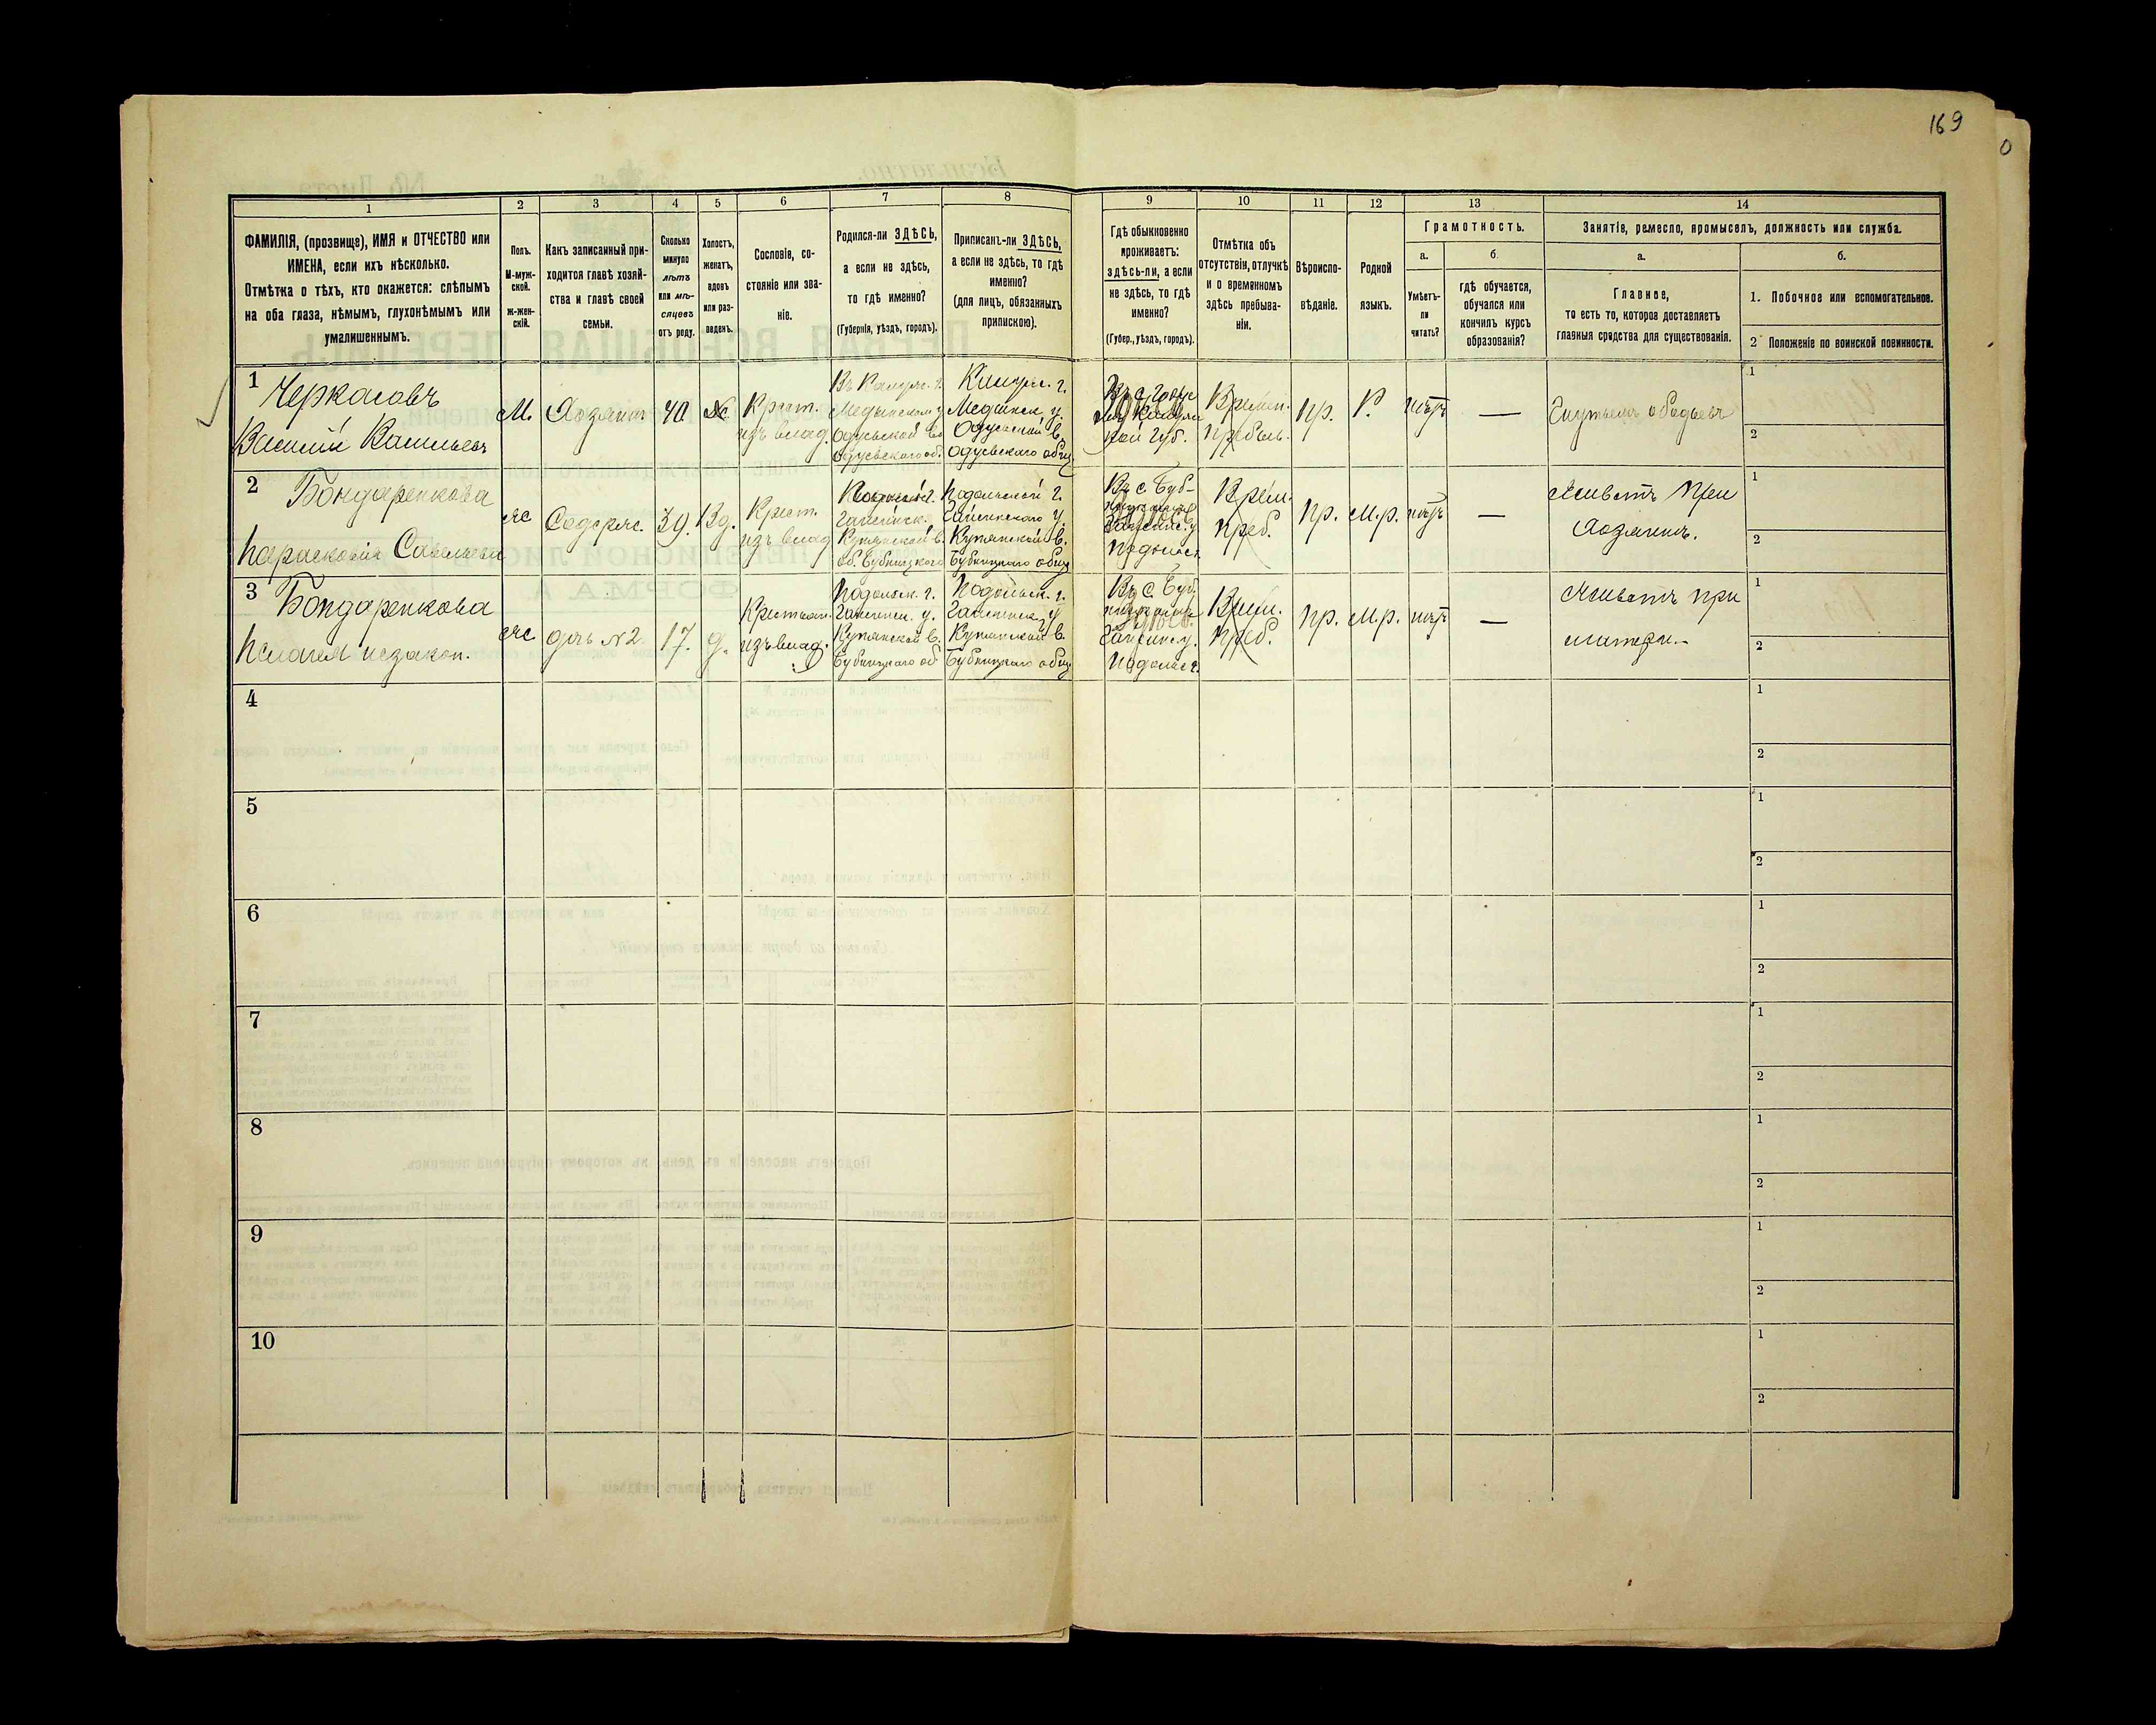 169
0
1
2
3
4
5
6
7
8
9
10
11
12
13
14
ФАМИЛІЯ, (прозвище), ИМЯ и ОТЧЕСТВО или
ИМЕНА, если ихъ нѣсколько.
Отмѣтка о тѣхъ, кто окажется: слѣпымъ
на оба глаза, нѣмымъ, глухонѣмымъ или
умалишеннымъ.
Полъ.
М-муж-
ской.
Ж-жен-
скій.
Какъ записанный при-
ходится главѣ хозяй-
ства и главѣ своей
семьи.
Сколько
минуло
лѣтъ
или мѣ-
сяцевъ
отъ роду.
Холостъ,
женатъ,
вдовъ
или раз-
веденъ.
Сословіе, со-
стояніе или зва-
ніе.
Родился-ли ЗДѢСЬ,
а если не здѣсь,
то гдѣ именно?
(Губернія, уѣздъ, городъ).
Приписанъ-ли ЗДѢСЬ,
а если не здѣсь, то гдѣ
именно?
(для лицъ, обязанныхъ
припискою).
Гдѣ обыкновенно
проживаетъ:
здѣсь-ли, а если
не здѣсь, то гдѣ
именно?
(Губер., уѣздъ, городъ).
Отмѣтка объ
отсутствіи, отлучкѣ
и о временномъ
здѣсь пребыва-
ніи.
Вѣроиспо-
вѣданіе.
Родной
языкъ.
Грамотность.
а.
Умѣетъ-
ли
читать?
б.
гдѣ обучается,
обучался или
кончилъ курсъ
образованія?
Занятіе, ремесло, промыселъ, должность или служба.
а.
Главное,
то есть то, которое доставляетъ
главныя средства для существованія.
б.
1. Побочное или вспомогательное.
2 Положеніе по воинской повинности.
1
Черкасовъ
Василій Васильевъ
М.
Хозяинъ
40
Ж
Крест.
изъ влад.
Въ Калуж. г.
Медынском у
Калуж. г.
Медынск. у.
Времен.
пр.
Р.
нѣтъ
—
1
2
2
Бондаренкова
Парасковія
ж
Содерж.
39.
Вд.
Крест.
изъ влад
Гайсинск.
Кунянской в.
об. Бубницкого
Подольской г.
Гайсинского у.
Кунянской в.
Бубницкаго общ
Въ с. Буб-
Подольск
Врем.
преб.
пр.
М.р.
нѣтъ
—
Живетъ при
хозяинѣ.
1
2
3
Бондаренкова
Пелагея незакон.
ж
дочь №2
17.
д.
Крестьян.
изъ влад.
Подольск. г.
Гайсинск. у.
Кунянской в.
Бубницкаго об
Подольск. г.
Гайсинск. у
Кунянской в.
Бубницкаго общ
Въ с. Буб
Гайсинс. у.
Подольс г.
Врем.
преб.
пр.
М.р.
нѣтъ
—
Живетъ при
матери.-
1
2
4
1
2
5
1
2
6
1
2
7
1
2
8
1
2
9
1
2
10
1
2